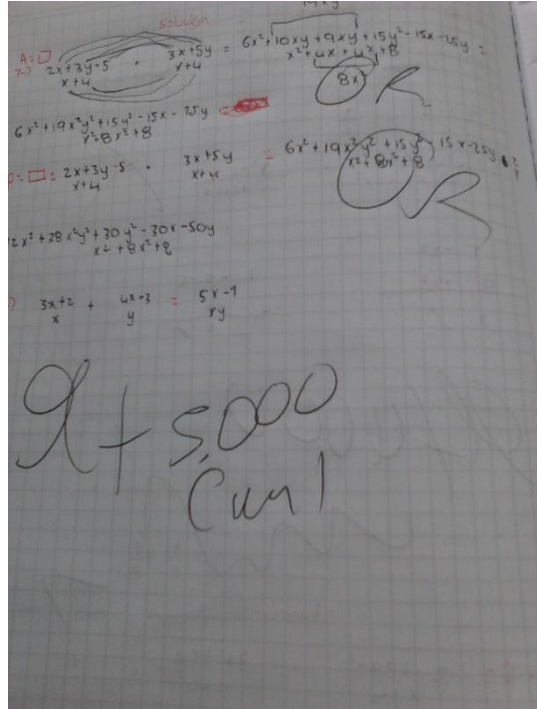 solución
A=□
2x+3y-5 · 3x+5y = 6x²+10xy+9xy+15y²-15x-25y =
x+4 x+4 x²+4x+4x+8
8x² R
6x²+19x²y²+15y²-15x-25y =
x²+8x²+8
=□= 2x+3y-5 · 3x+5y = 6x²+19x²y²+15y²-15x-25y
x+4 x+4 x2+8x²+8
R
2x²+38x²y²+30y²-30x-50y
x2+8x²+8
3x+2 + 4x-3 = 5x-1
x y xy
9+5.000